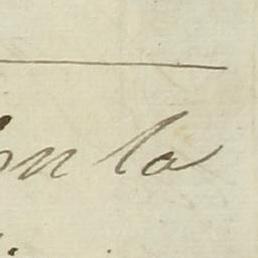 on la